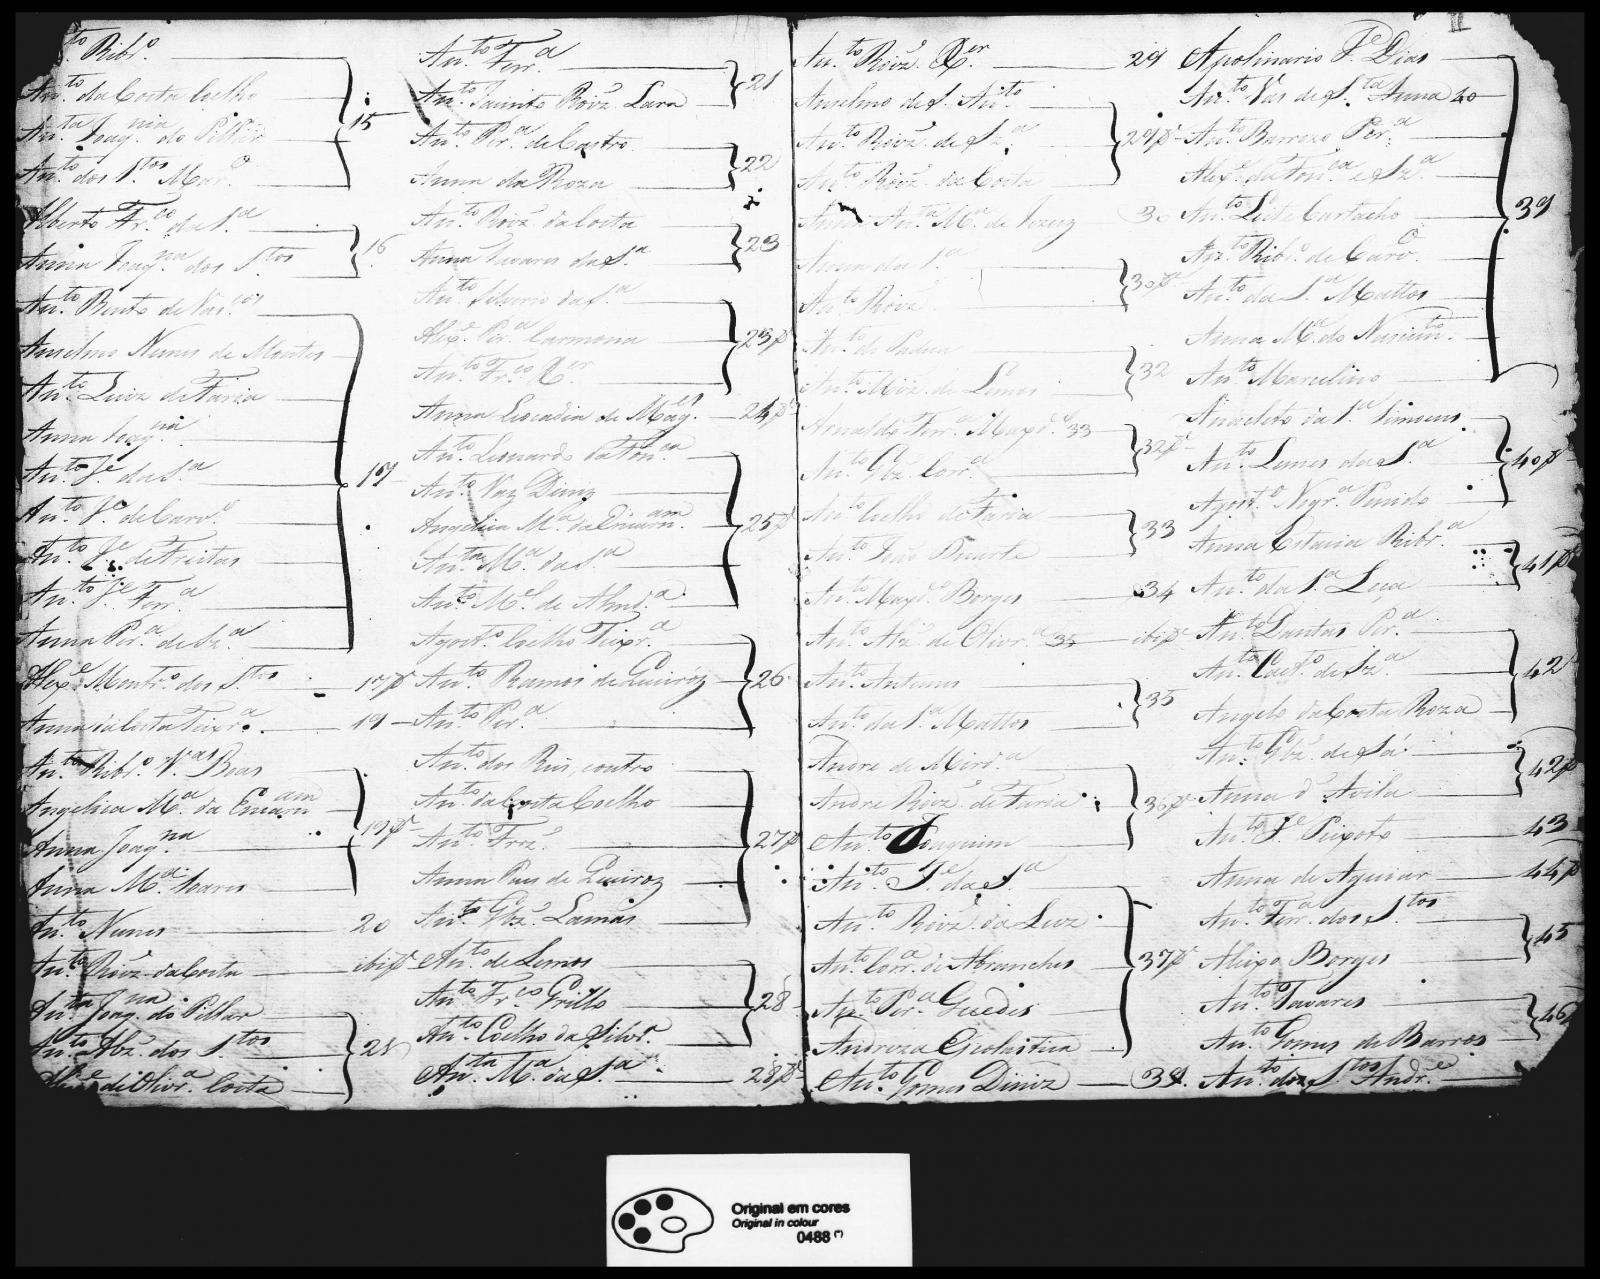 An.to Ribr.o
An.to da Costa Coelho
An.ta Joaq.na do Pillar
15
An.to dos S.tos Mar.o
Alberto Fr.co da S.a
Anna Joaq.na dos S.tos
16
An.to Bento de Vas.cos
Anselmo Nunes de Montes
An.to Luiz de Faria
Anna Joaq.na
An.to J.e da S.a
17
An.to J.e de Carv.o
An.to J.e de Freitas
An.to J.e Ferr.a
Anna Per.a de Sz.a
Alex.e Montr.o dos S.tos 17
Anna da Costa Teixr.a 19
An.to Ribr.o V.as Boas
Angelica M.a da Encarn.am
Anna Joaq.na
19
Anna M.a Soares
An.to Nunes 20
An.to Roiz da Costa ibi
An.ta Joaq.na do Pillar
An.to Abz. dos S.tos
21
de Olivr.a Costa
An.to Ferr.a
An.to Jacinto Roiz Lara
21
An.to Per.a de Castro
Anna da Roza
22
An.to Roiz da Costa
Anna Tavares da S.a
23
An.to Silverio da S.a
Alex.e Per.a Carmona
23
An.to Fr.co X.er
Anna Leocadia de Mag.es 24
An.to Leonardo da Fon.ca
An.to Vaz Diniz
Angelica M.a da Encarn.am
25
An.ta M.a da S.a
An.to M.el de Almd.a
Agost.o Coelho Teixr.a
An.to Ramos de Queiroz
26
An.to Per.a
An.to dos Reis, contro
An.to da Costa Coelho
An.to Frz.
27
Anna Paes de Queiroz
An.to Glz. Lamas
An.to de Lemos
An.to Fr.co Grillo
28
An.to Coelho da Silvr.a
An.ta M.a da S.a 28
An.to Roiz X.er 29
Anselmo de S. An.to
An.to Roiz de Sz.a
29
An.to Roiz da Costa
Anna An.ta M.a de Jezus 30
Anna da S.a
30
An.to Roiz
An.to de Padua
32
An.to Roiz de Lemos
Arnaldo Ferr.a Maxd.o 33
32
An.to Glz. Corr.a
An.to Coelho de Faria
33
An.to Duarte
An.to Maxd.o Borges 34
An.to Alz. de Olivr.a 35 ibi
An.to Antunes
35
An.to da S.a Mattos
Andre de Mird.a
Andre Roiz de Faria
36
An.to Joaquim
An.to J.e da S.a
An.to Roiz da Luz
An.to Corr.a de Abranches
37
An.to Per.a Guedes
Andreza Escolastica
An.to Gomes Diniz 38
II
Apolinario F. Dias
An.to Vas de S.ta Anna 40
An.to Barrozo Per.a
Alex.e da Fon.ca e Sz.a
An.to Leite Cartacho
39
An.to Ribr.o de Carv.o
An.to da S.a Mattos
Anna M.a do Nascim.to
An.to Marcelino
Anacleto da S.a Simoens
An.to Lemes da S.a
40
Agost.o Nogr.a Penido
Anna Estacia Ribr.a
41
An.to da S.a Leça
An.to Dantas Per.a
An.to Caet.o de Sz.a
42
Angelo da Costa Roza
An.to Glz. de Sá
42
Anna d'Avila
An.to J.e Peixoto 43
Anna de Aguiar 44
An.to Ferr.a dos S.tos
45
Aleixo Borges
An.to Tavares
46
An.to Gomes de Barros
An.to dos S.tos Andr.e
Original em cores
Original in colour
0488 (*)